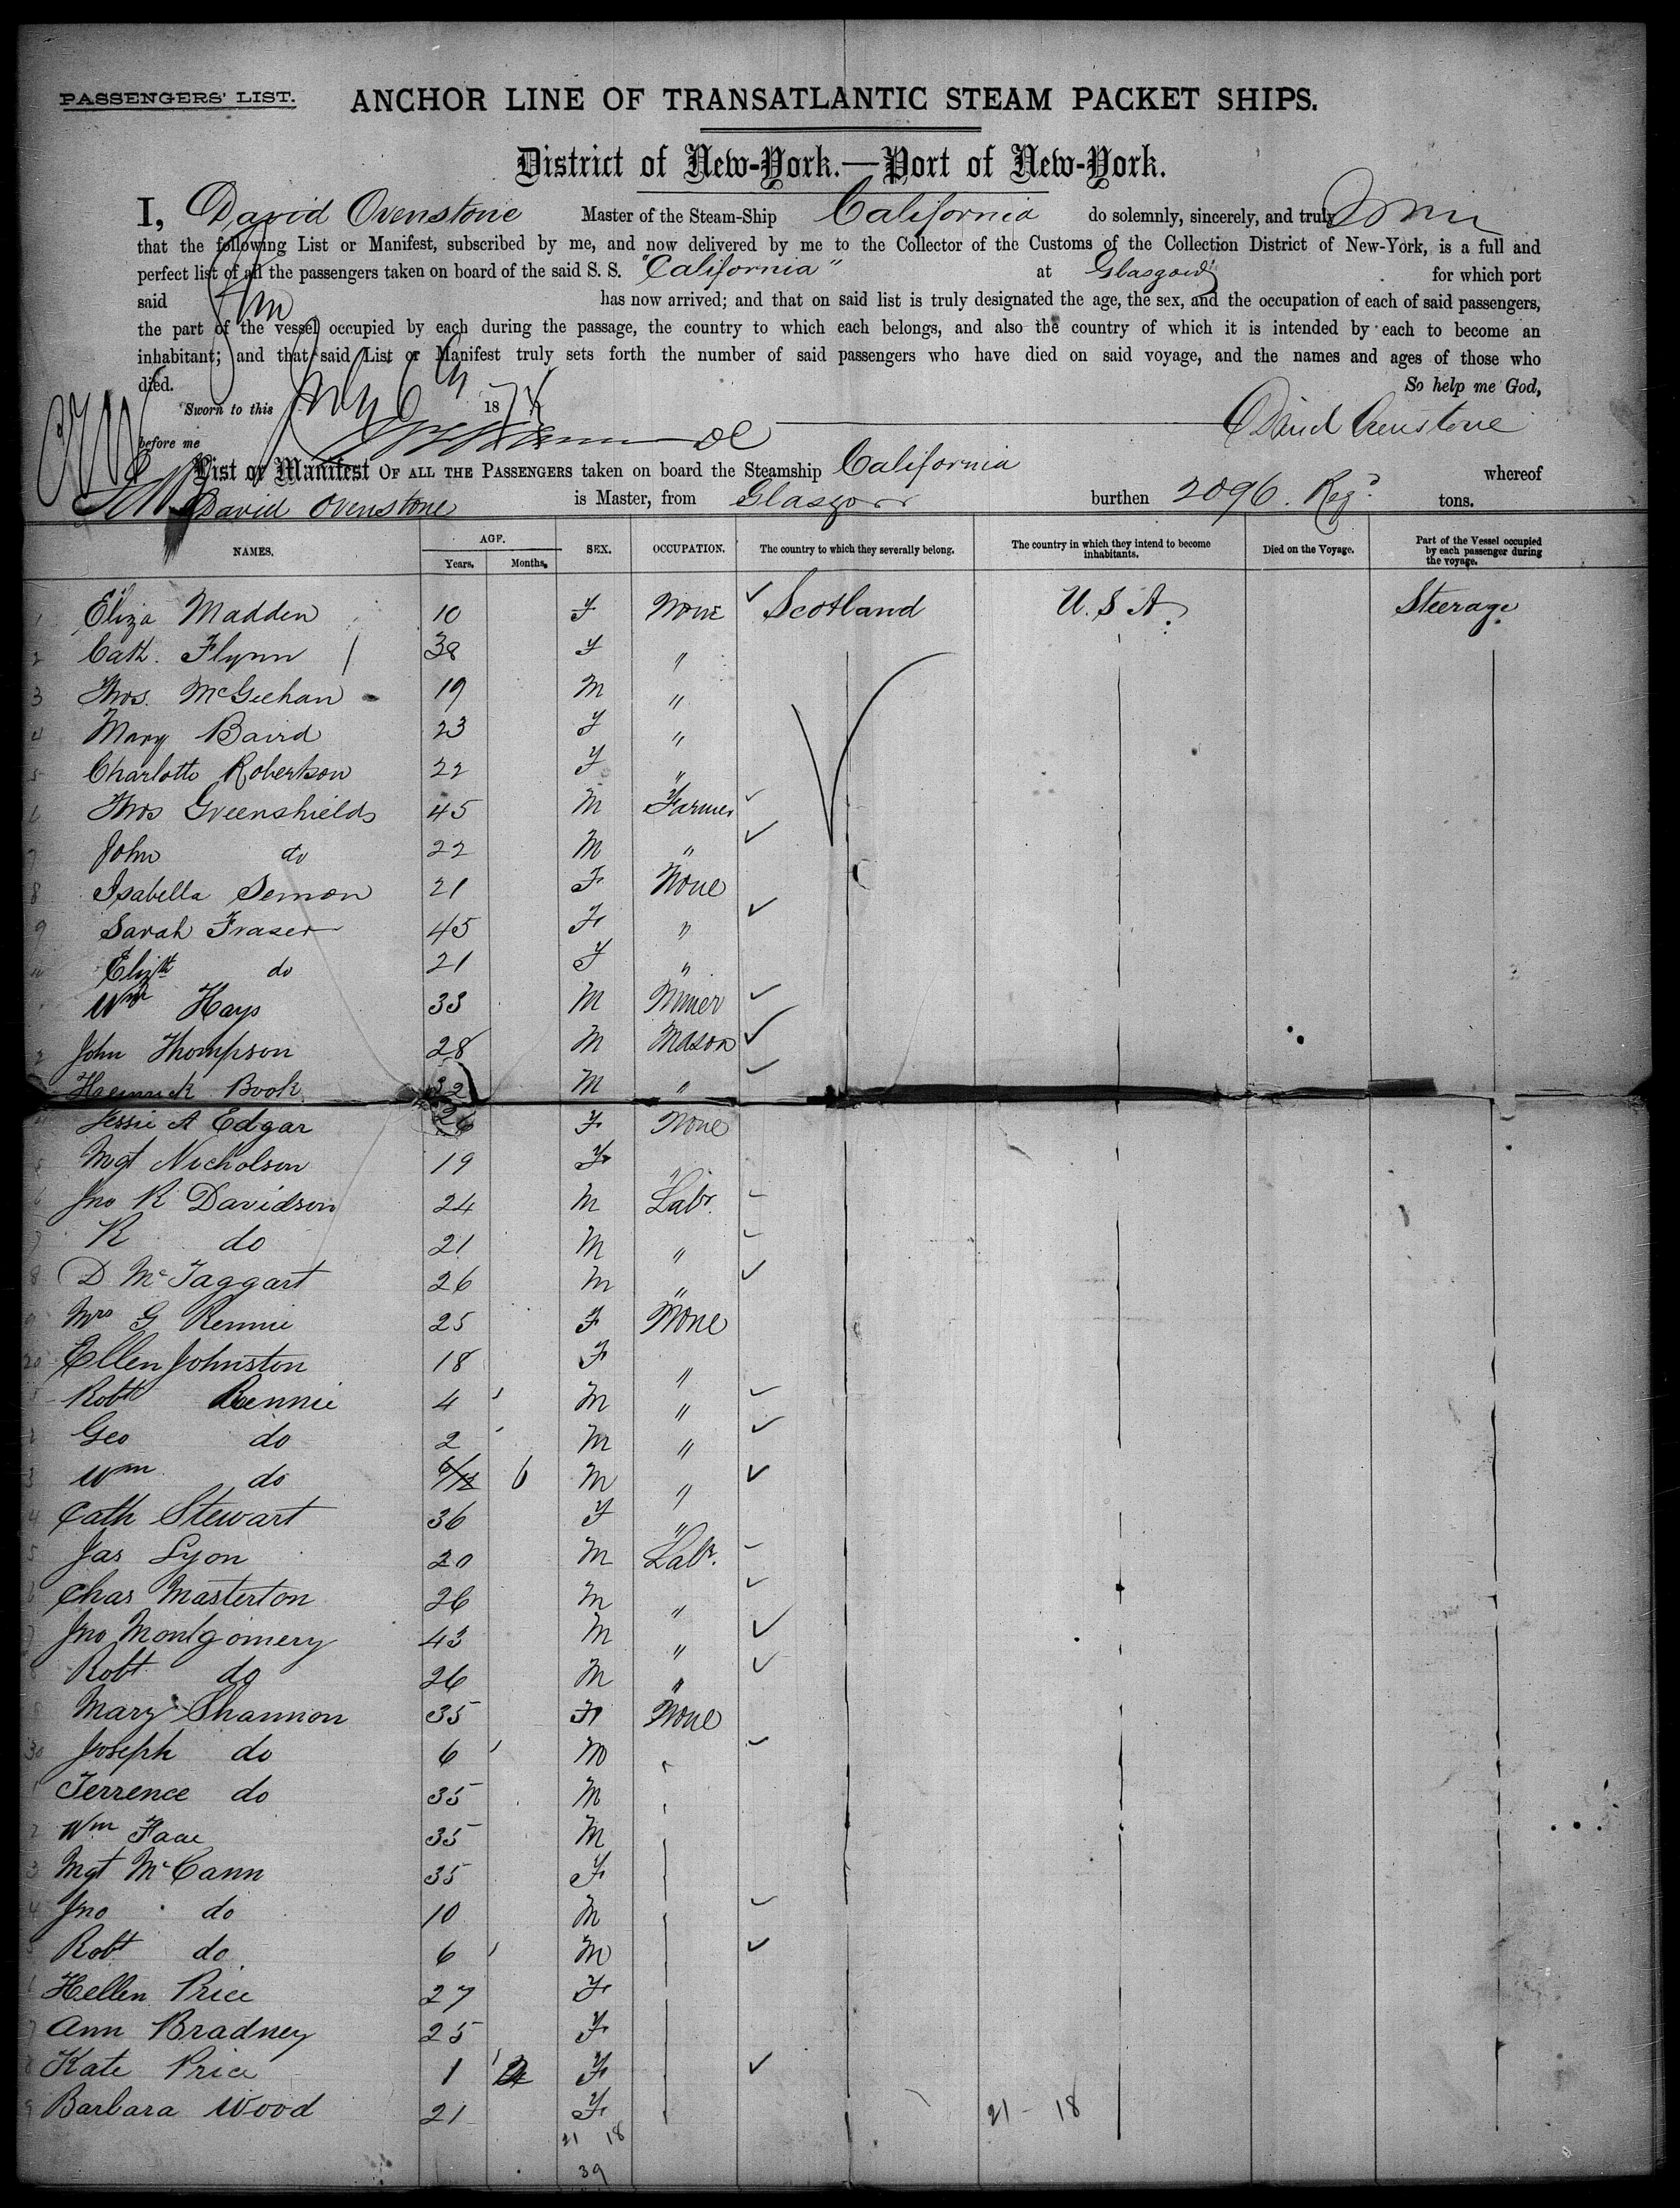 PASSENGERS' LIST.
ANCHOR LINE OF TRANSATLANTIC STEAM PACKET SHIPS.
District of New-York.—Port of New-York.
I, David Ovenstone Master of the Steam-Ship California do solemnly, sincerely, and truly
that the following List or Manifest, subscribed by me, and now delivered by me to the Collector of the Customs of the Collection District of New-York, is a full and
perfect list of all the passengers taken on board of the said S. S. "California" at Glasgow for which port
said has now arrived; and that on said list is truly designated the age, the sex, and the occupation of each of said passengers,
the part of the vessel occupied by each during the passage, the country to which each belongs, and also the country of which it is intended by each to become an
inhabitant; and that said List or Manifest truly sets forth the number of said passengers who have died on said voyage, and the names and ages of those who
died. So help me God,
Sworn to this July 6th 1874
David Ovenstone
before me
List or Manifest OF ALL THE PASSENGERS taken on board the Steamship California whereof
David Ovenstone is Master, from Glasgow burthen 2096 Regd tons.
NAMES. AGE. Years. Months. SEX. OCCUPATION. The country to which they severally belong. The country in which they intend to become inhabitants. Died on the Voyage. Part of the Vessel occupied by each passenger during the voyage.
1 Eliza Madden 10 F None Scotland U.S.A. Steerage
2 Cath. Flynn 38 F "
3 Thos. McGeehan 19 M "
4 Mary Baird 23 F "
5 Charlotte Robertson 22 F "
6 Thos Greenshields 45 M Farmer
7 John do 22 M "
8 Isabella Semon 21 F None
9 Sarah Fraser 45 F "
Elizth do 21 F "
Wm Hays 33 M Miner
2 John Thompson 28 M Mason
Book 32 M "
Jessie A Edgar 26 F None
5 Mgt Nicholson 19 F "
6 Jno R Davidson 24 M Labr.
7 R do 21 M "
8 D McTaggart 26 M "
9 Mrs G Rennie 25 F None
20 Ellen Johnston 18 F "
Robt Rennie 4 M "
2 Geo do 2 M "
3 Wm do 6/12 6 M "
4 Cath Stewart 36 F "
5 Jas Lyon 20 M Labr.
6 Chas Masterton 26 M "
7 Jno Montgomery 43 M "
8 Robt do 26 M "
Mary Shannon 35 F None
30 Joseph do 6 M
1 Terrence do 35 M
2 Wm 35 M
3 Mgt McCann 35 F
4 Jno do 10 M
5 Robt do 6 M
6 Hellen Price 27 F
7 Ann Bradney 25 F
8 Kate Price 1 F
9 Barbara Wood 21 F
21 - 18
21 18
39